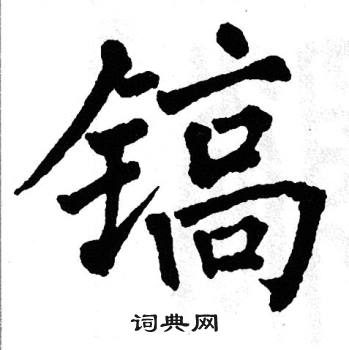 镐
词典网